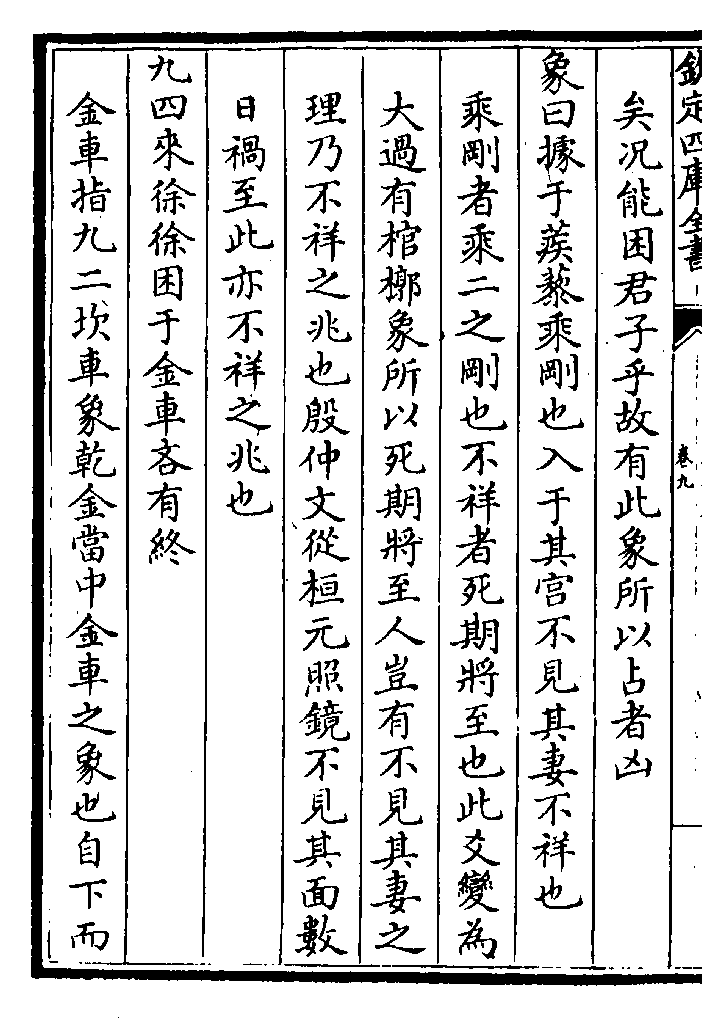 欽定四庫全書
卷九
矣况能困君子乎故有此象所以占者凶
象曰據于蒺藜乘剛也入于其宮不見其妻不祥也
乘剛者乘二之剛也不祥者死期將至也此爻變為
大過有棺槨象所以死期將至人豈有不見其妻之
理乃不祥之兆也殷仲文從桓元照鏡不見其面數
日禍至此亦不祥之兆也
九四來徐徐困于金車吝有終
金車指九二坎車象乾金當中金車之象也自下而